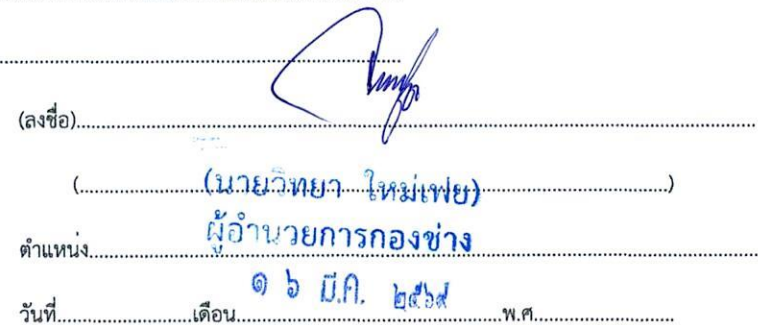 (ลงชื่อ)
(นายวิทยา ใหม่เฟย)
ตำแหน่ง ผู้อำนวยการกองช่าง
๑ ๖ มี.ค. ๒๕๖๙
วันที่ เดือน พ.ศ.